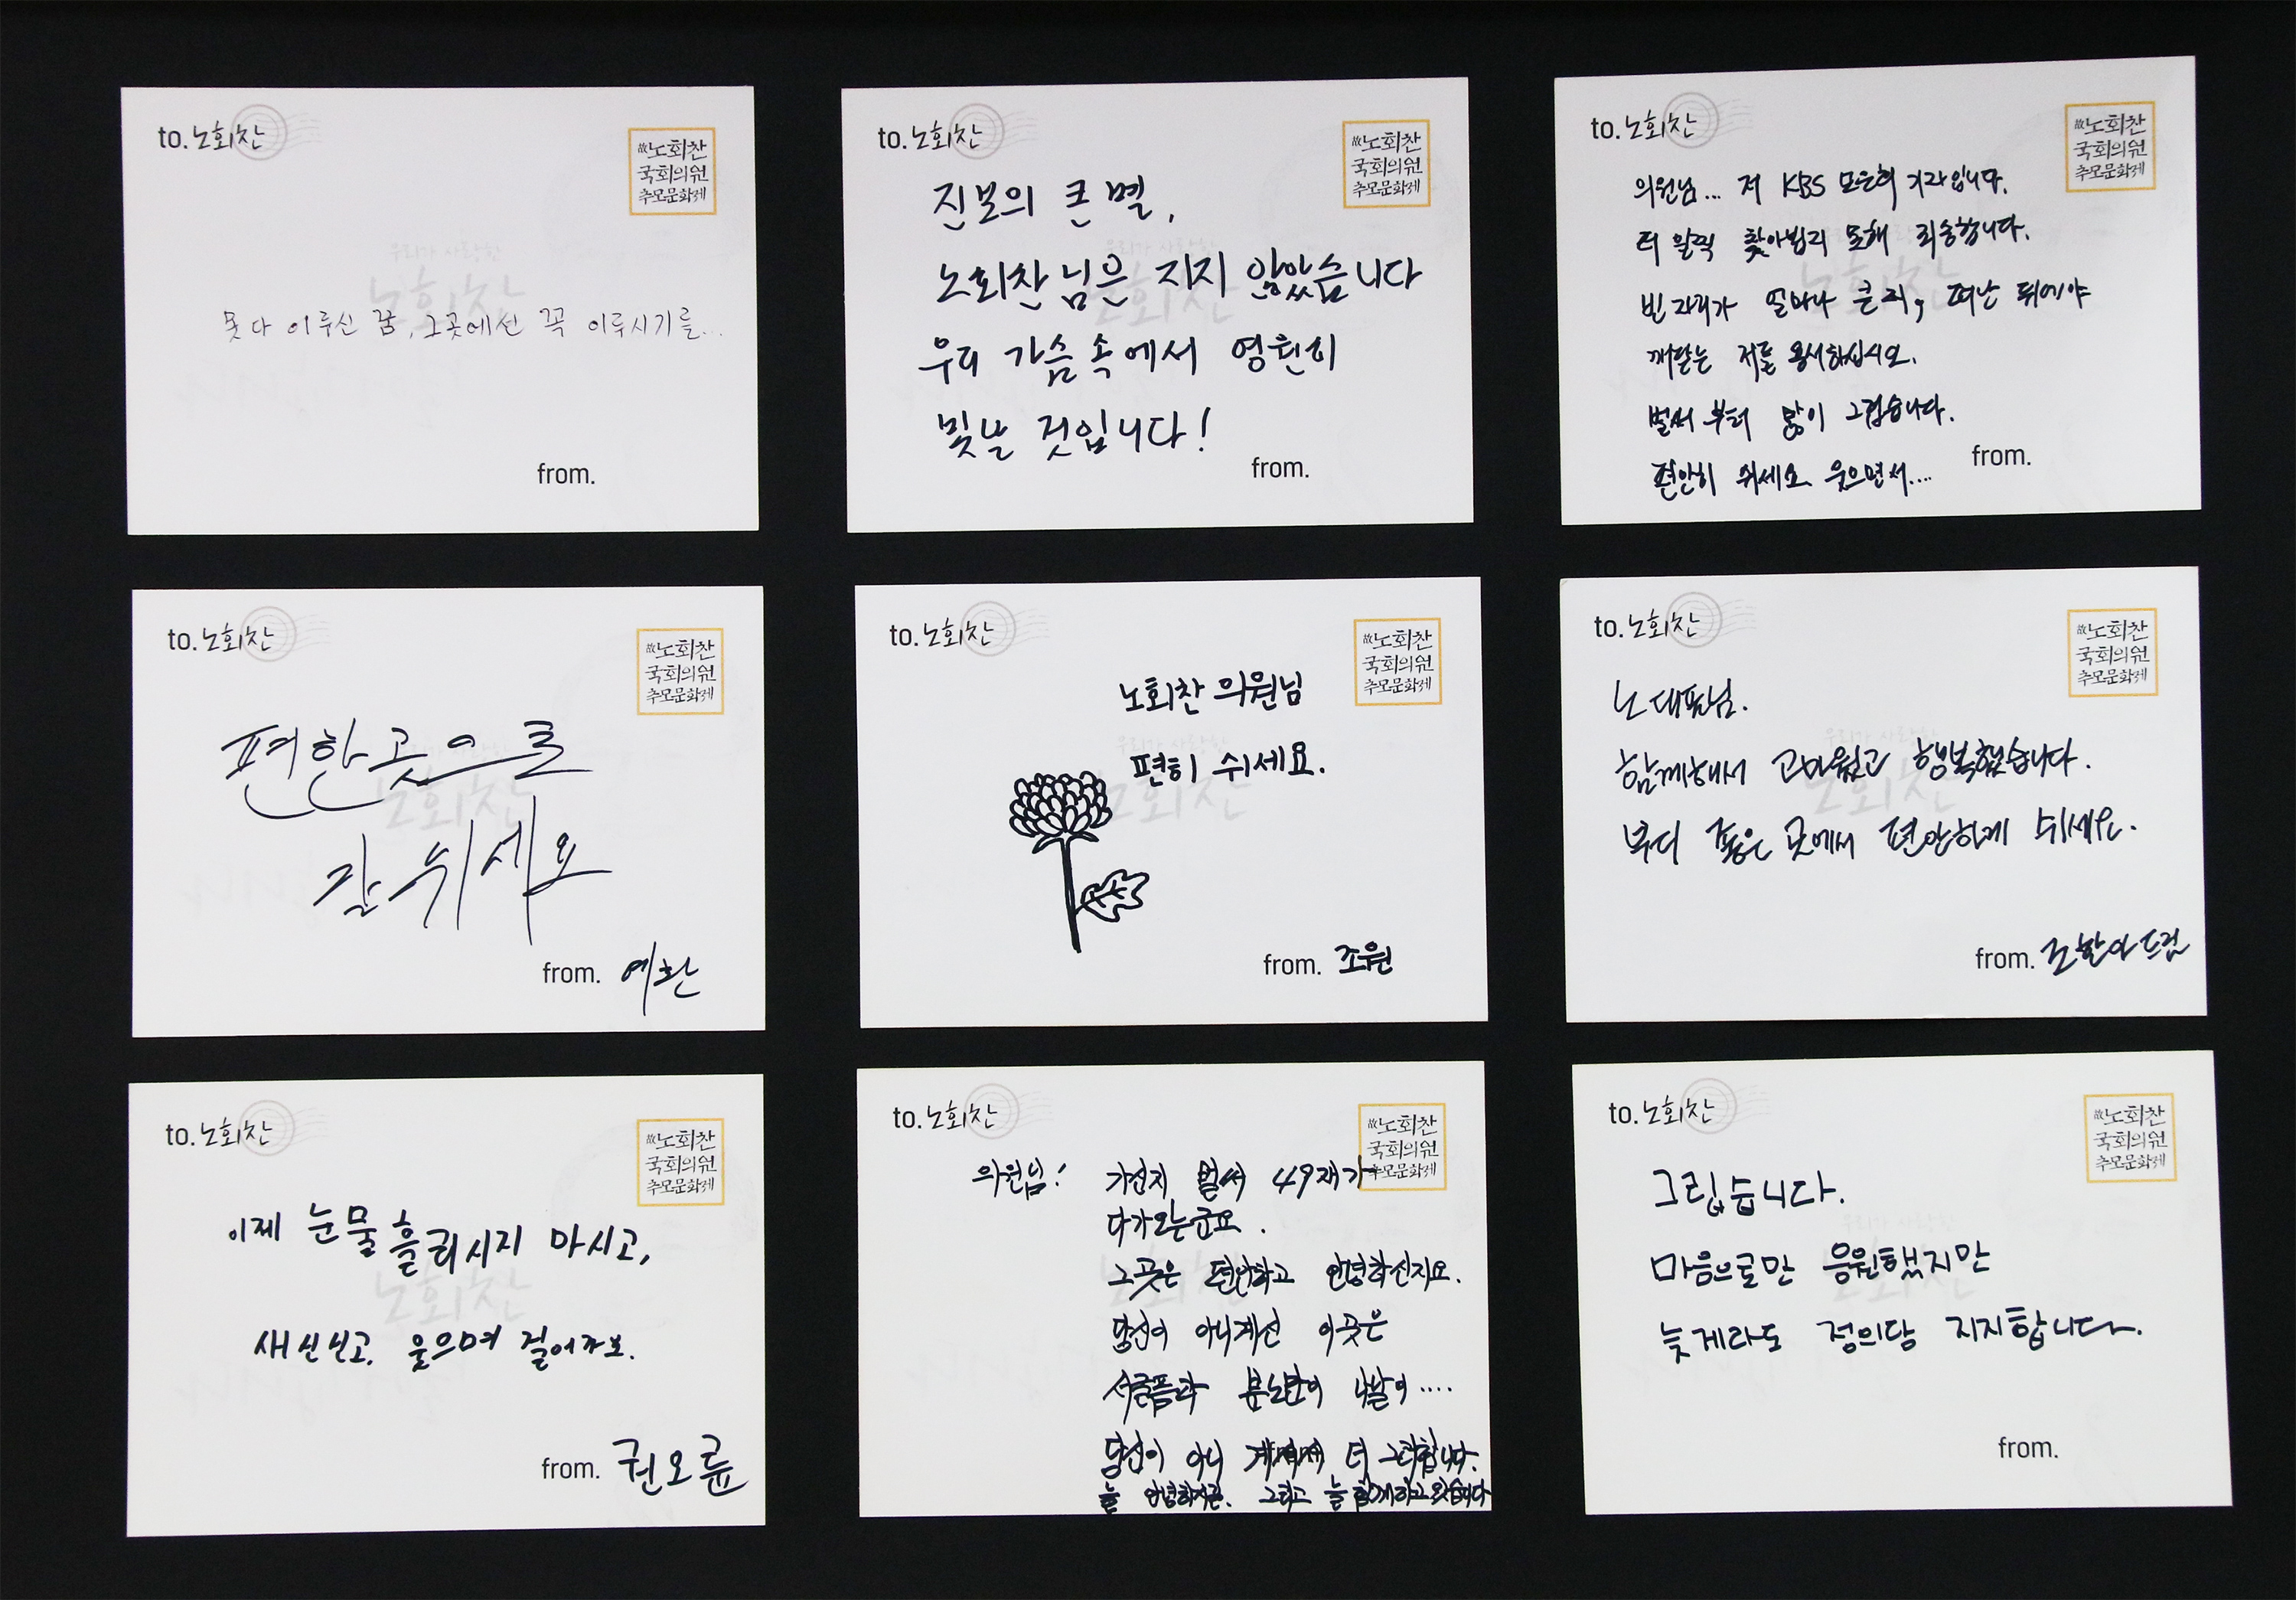 to. 노회찬
故노회찬
국회의원
추모문화제
우리가 사랑한
노회찬
못다 이루신 꿈, 그곳에선 꼭 이루시기를...
from.
to. 노회찬
故노회찬
국회의원
추모문화제
진보의 큰 별,
노회찬님은 지지 않았습니다
우리 가슴 속에서 영원히
빛날 것입니다!
from.
to. 노회찬
故노회찬
국회의원
추모문화제
의원님... 저 KBS 모은희 기자입니다.
더 일찍 찾아뵙지 못해 죄송합니다.
빈 자리가 얼마나 큰 지, 떠난 뒤에야
깨닫는 저를 용서하십시오.
벌써부터 많이 그립습니다.
편안히 쉬세요. 웃으면서....
from.
to. 노회찬
故노회찬
국회의원
추모문화제
편한 곳으로
잘 쉬세요
from. 예환
to. 노회찬
故노회찬
국회의원
추모문화제
노회찬 의원님
편히 쉬세요.
from. 조원
to. 노회찬
故노회찬
국회의원
추모문화제
노 대표님.
함께해서 고마웠고 행복했습니다.
부디 좋은 곳에서 편안하게 쉬세요.
from. 드림
to. 노회찬
故노회찬
국회의원
추모문화제
이제 눈물 흘리시지 마시고,
새 신 신고, 웃으며 걸어가보.
from. 권오륜
to. 노회찬
故노회찬
국회의원
추모문화제
의원님! 가신지 벌써 49재가
다가오는군요.
그곳은 편안하고 안녕하신지요.
당신이 아니계신 이곳은
서글픔과 분노만이 나날이....
당신이 아니 계셔서 더 그러합니다.
늘 안녕하시길. 그리고 늘 함께하고 있습니다
to. 노회찬
故노회찬
국회의원
추모문화제
그립습니다.
마음으로만 응원했지만
늦게라도 정의당 지지합니다.
from.